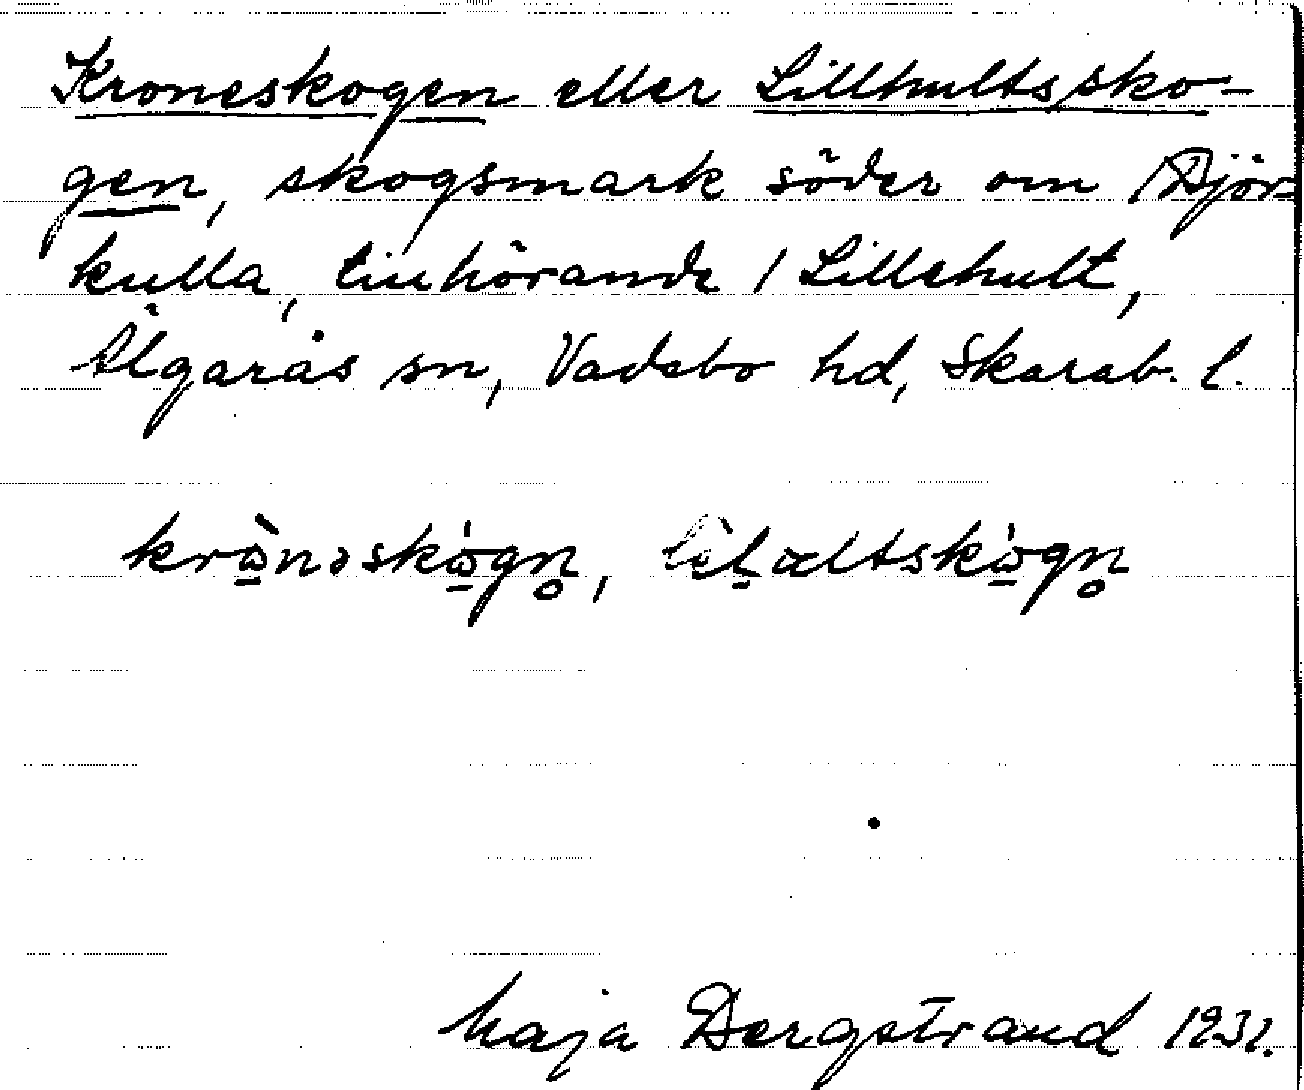 Kroneskogen eller Lillhultssko-
gen, skogsmark söder om /Björ-
kulla, tillhörande / Lillehult,
Älgarås sn, Vadsbo hd, Skarab. l.
Maja Bergstrand 1931.